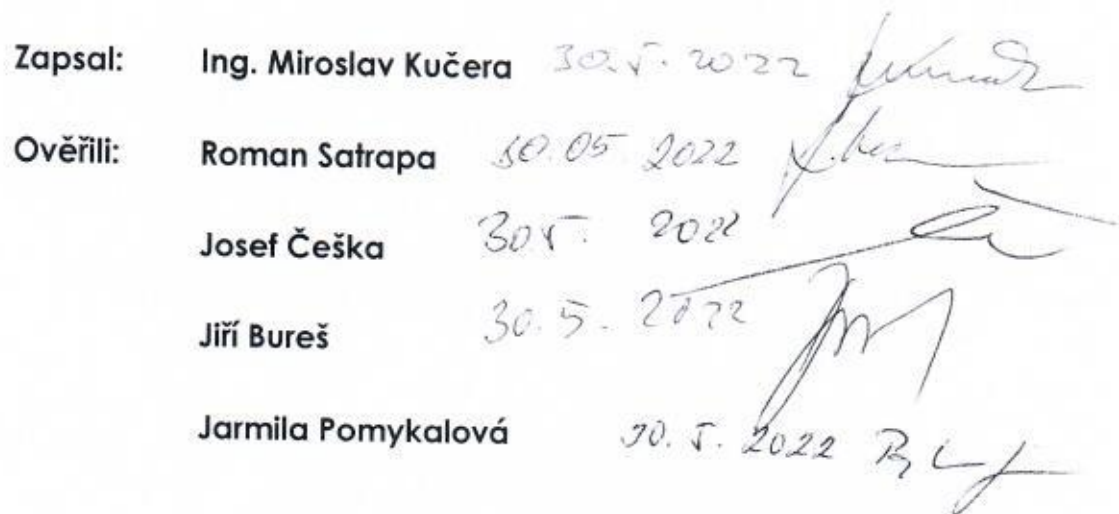 Zapsal: Ing. Miroslav Kučera 30.5.2022
Ověřili: Roman Satrapa 30.05 2022
Josef Češka 30 5. 2022
Jiří Bureš 30.5. 2022
Jarmila Pomykalová 30.5. 2022